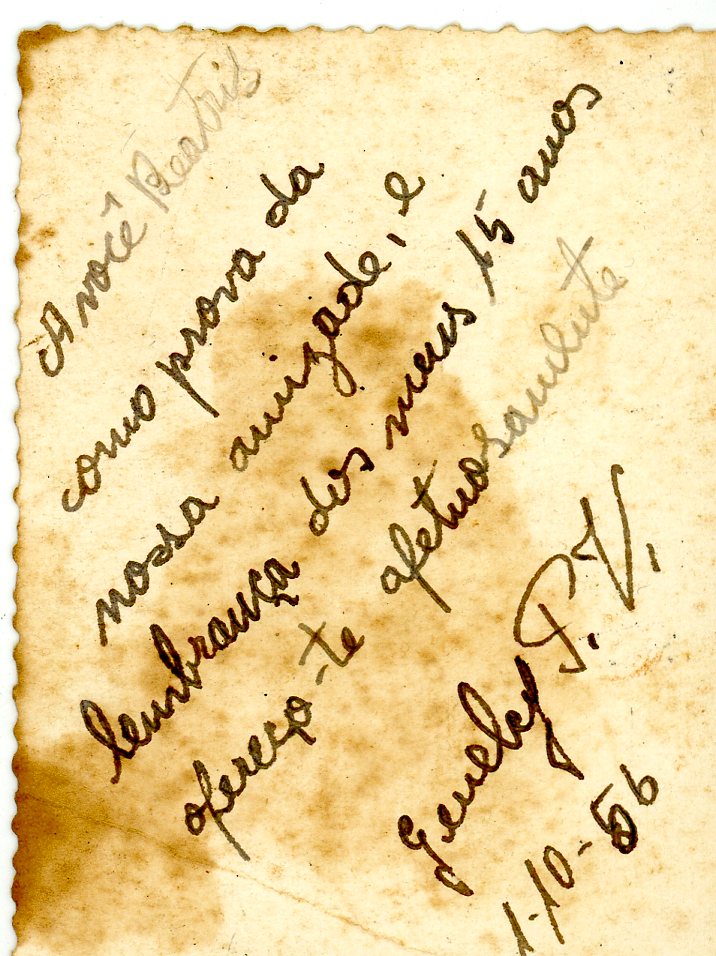 A você Beatris
como prova da
nossa amizade, e
lembrança dos meus 15 anos
ofereço-te afetuosamente
Genely P.V.
1-10-56